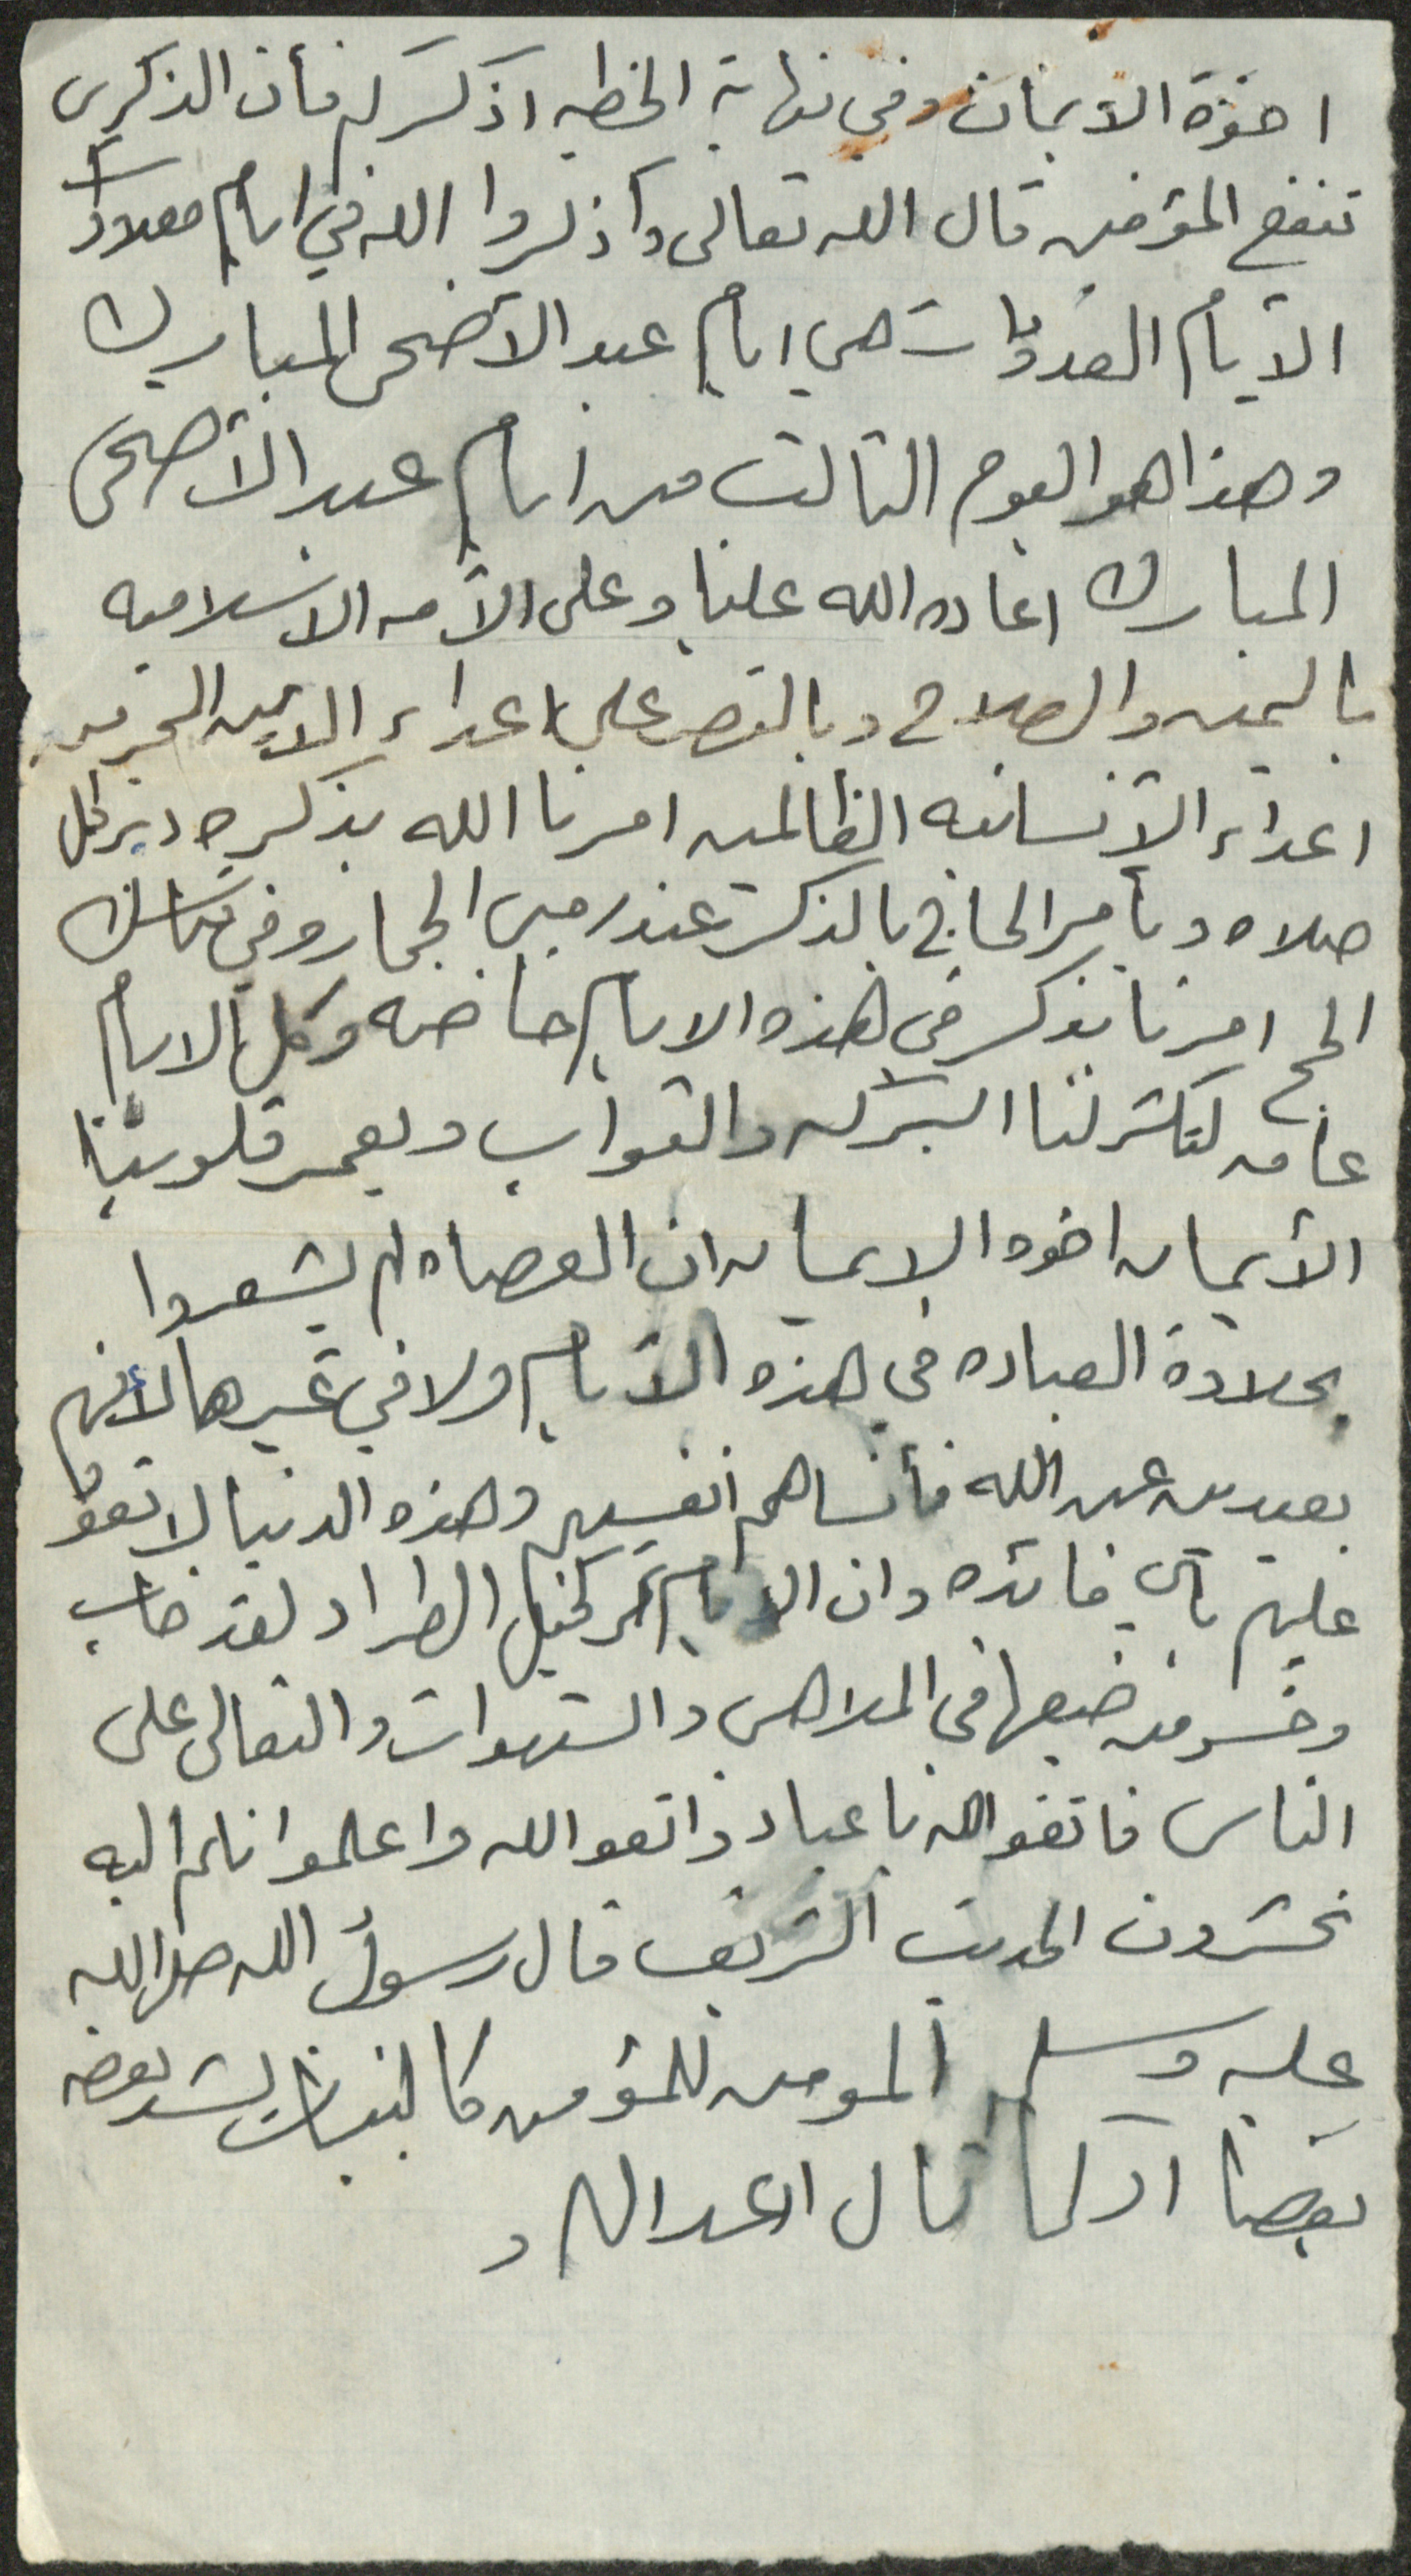 اخوة الأيمان وفي نهاية الخطبه اذكركم فأن الذكرى
تنفع المؤمنين قال الله تعالى واذكروا الله في ايام معدودات
الأيام المعدودات هي ايام عيد الأضحى المبارك
وهذا هو اليوم الثالث من ايام عيد الأضحى
المبارك اعاده الله علينا وعلى الأمه الاسلاميه
باليمن والصلاح وبالنصر على اعداء الدين المجرمين
اعداء الأنسانيه الظالمين امرنا الله بذكره دبر كل
صلاه ويأمر الحاج بالذكر عند رمي الجمار وفي مناسك
الحج امرنا بذكر في هذه الايام خاصه وكل الايام
عامه لتكثر لنا البركه والثواب ويعمر قلوبنا
الأيمان اخوه الايمان ان العصاه لم يشعروا
بحلاوة العباده في هذه الأيام ولا في غيرها لأنهم
بعيدين عن الله فأنساهم انفسهم وهذه الدنيا لا تعود
عليهم بأي فائده وان الايام تمر كخيل الطراد لقد خاب
وخسر من ضيعها في الملاهي والشهوات والتعالي على
الناس فاتقوالله يا عباد واتقوا الله واعلموا انكم اليه
تحشرون الحديث الشريف قال رسول الله صلى الله
عليه وسلم المومن للمؤمن كالبنيان يشد بعضه
بعضا اوكما قال ادعوا الله و